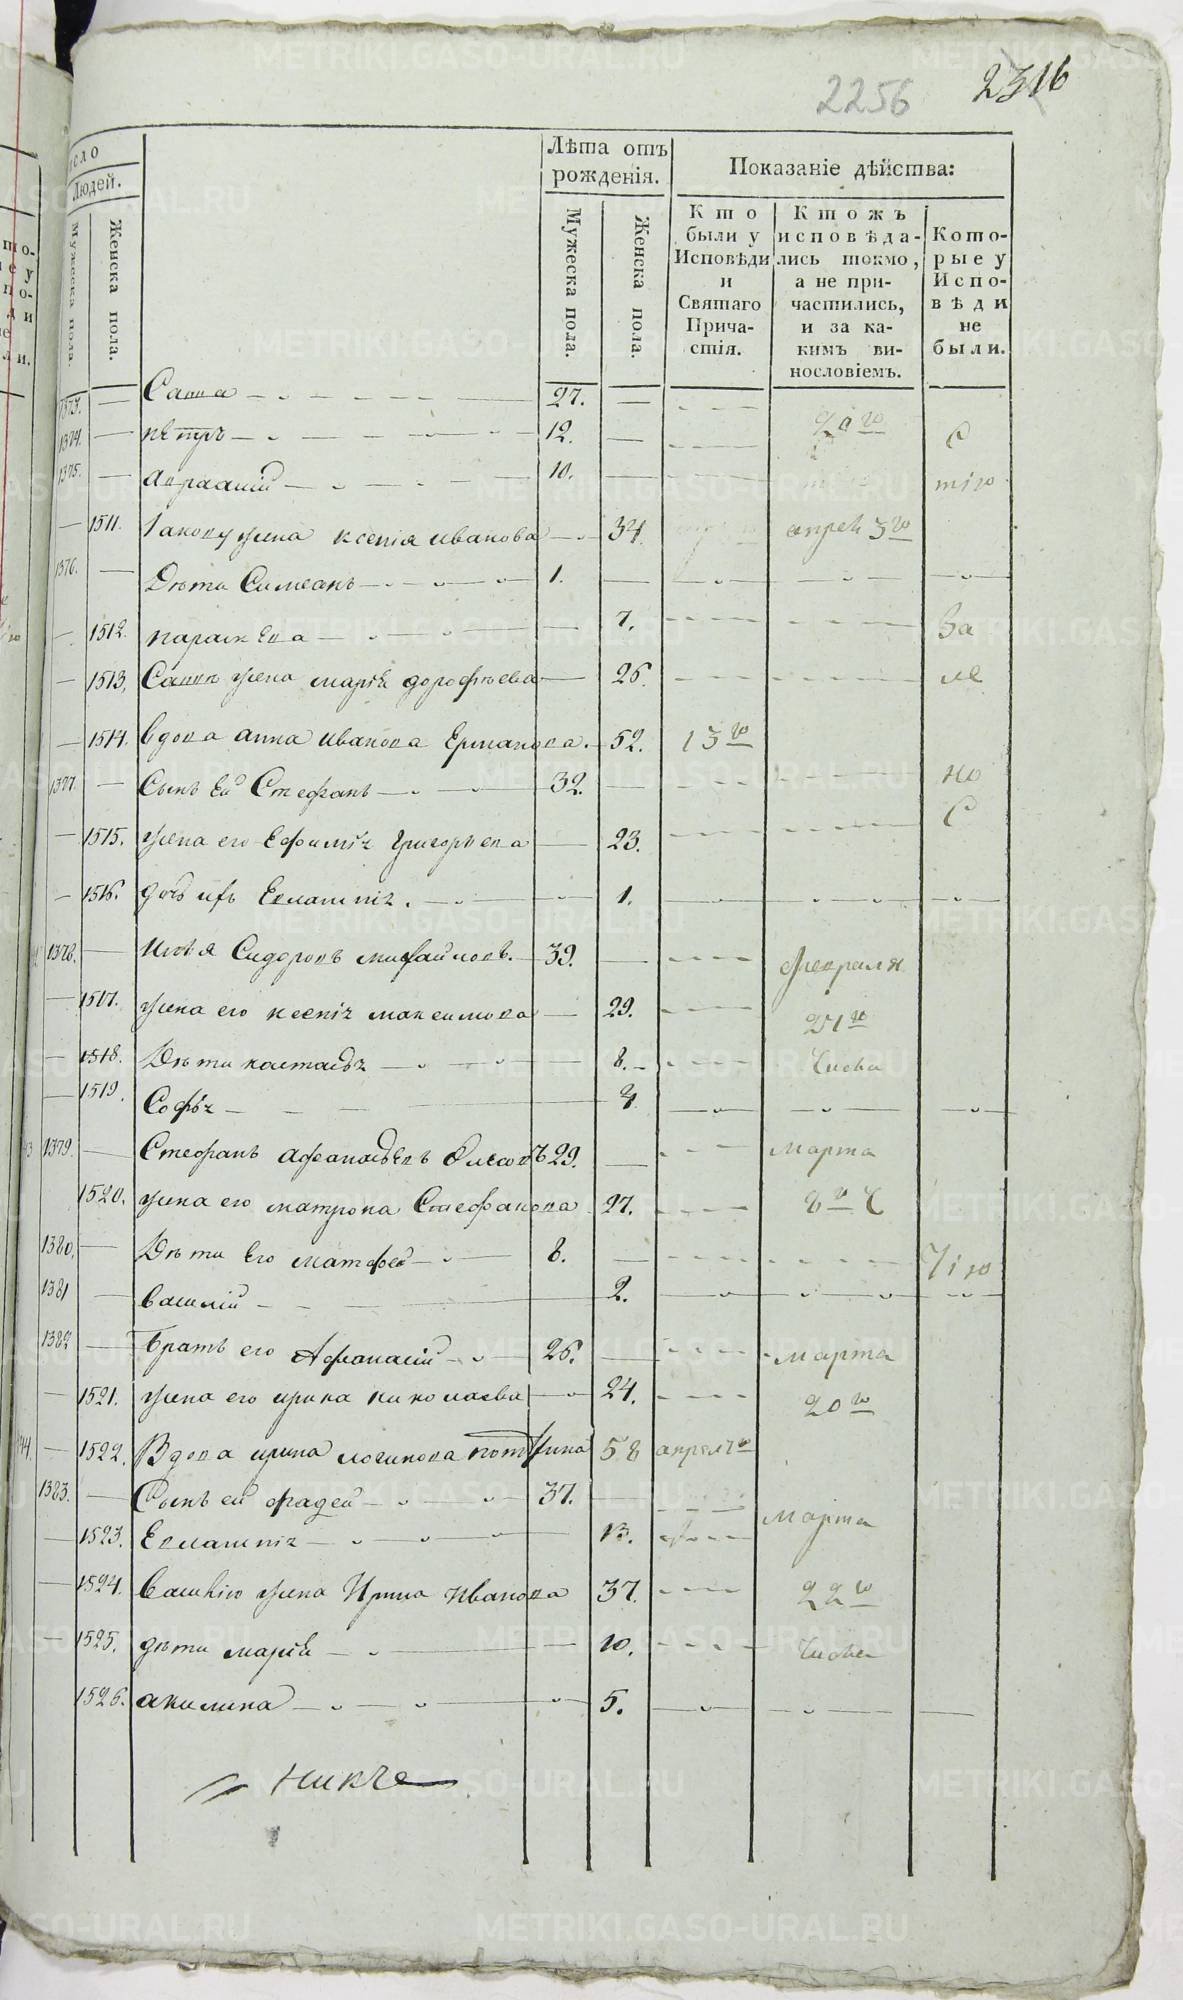 2256
2316
Людей.
Мужеска пола.
Женска пола.
Лѣта отъ
рожденія.
Мужеска пола.
Женска пола.
Показаніе дѣйства:
Кто
были у
Исповѣди
и
Святаго
Прича-
стія.
Ктожъ
исповѣда-
лись токмо,
а не при-
частились,
и за ка-
кимъ ви-
нословіемъ.
Кото-
рые у
Испо-
вѣди
не
были.
1373. Савва 27.
1374. петръ 12. 20го С
1375. авраамій 10. тіго
1511. Іакову жена ксенія иванова 34. апрел 3го
1376. Дѣти Симеонъ 1.
1512. параскева 7. За
1513. Саввы жена марія дорофѣева 26. ме
1514. вдова анна иванова Ермакова. 52. 13го
1377. Сынъ ей Стефанъ 32. но
1515. жена его Ефимія григорьева 23. С
1516. дочь ихъ Евлампія. 1.
1378. Илья Сидоровъ михайловъ. 39. февраля
1517. жена его ксенія максимова 29. 21го
1518. Дѣти настасья 8. числа
1519. Софья
1379. Стефанъ Афанасьевъ 29. марта
1520. жена его матрона Стефанова 27. 8го Ч
1380. Дѣти Его матфей 8.
1381 василій 2.
1382 Братъ его Афанасій 26. марта
1521. жена его ирина николаева 24. 20го
1522. Вдова ирина логинова 58 апреля
1383. Сынъ ей фадей 37. марта
1523. Евлампія 13.
1524. василію жена Ирина иванова 37. 22го
1525. дѣти марія 10. числа
1526. акилина 5.
METRIKI.GASO-URAL.RU